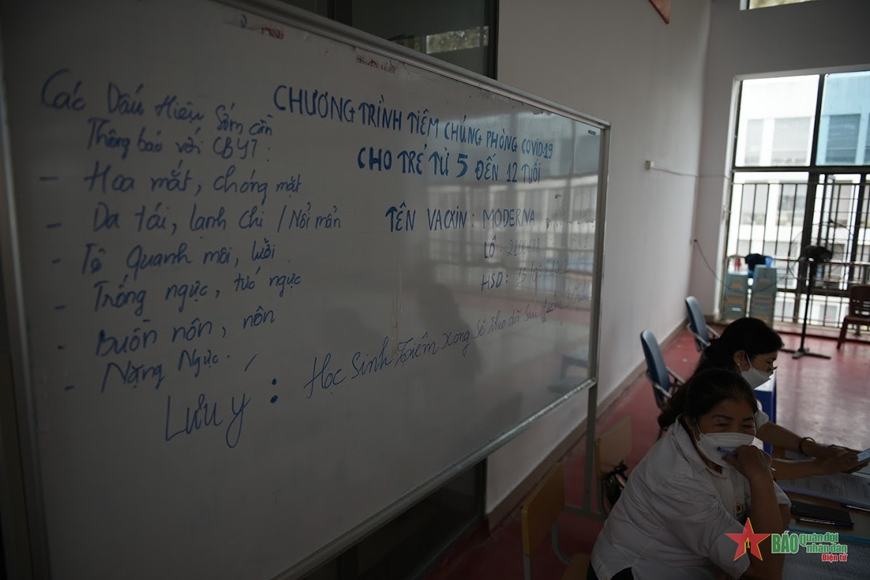 Các Dấu Hiệu Sớm cần
Thông báo với CBYT:
- Hoa mắt, chóng mặt
- Da tái, lạnh chi / Nổi mẩn
- Tê Quanh môi, lưỡi
- Trống ngực, tức ngực
- Buồn nôn, nôn
- Nặng Ngực.
CHƯƠNG TRÌNH TIÊM CHỦNG PHÒNG COVID-19
CHO TRẺ TỪ 5 ĐẾN 12 TUỔI
TÊN VACXIN: MODERNA
LÔ:
HSD:
Lưu ý: Học Sinh Tiêm xong sẽ theo dõi sau
BÁO quân đội
nhân dân
Điện tử